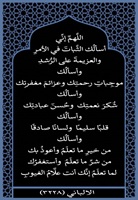 اللهم إني
أسألك الثبات في الأمر
والعزيمة على الرشد
وأسألك
موجبات رحمتك وعزائم مغفرتك
وأسألك
شكر نعمتك وحسن عبادتك
وأسألك
قلبا سليما ولسانا صادقا
وأسألك
من خير ما تعلم وأعوذ بك
من شر ما تعلم وأستغفرك
لما تعلم إنك أنت علام الغيوب
الألباني (٣٢٢٨)